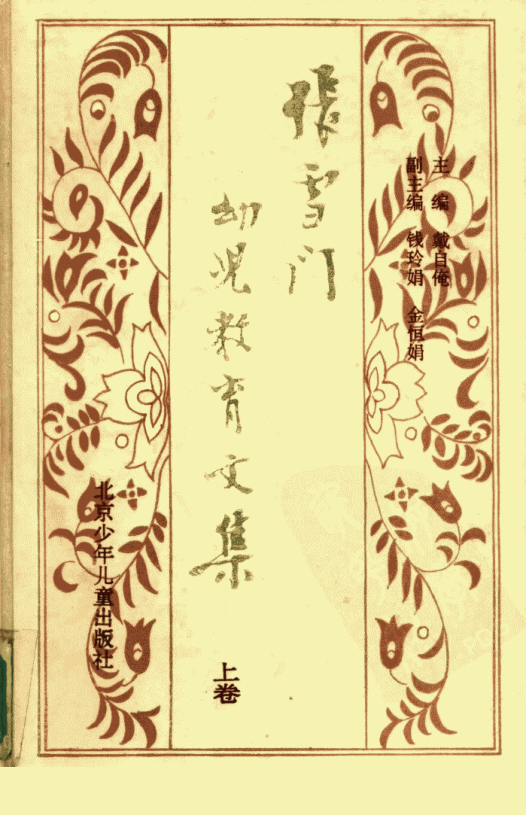 主编 戴自俺
副主编 钱玲娟 金恒娟
張雪门
幼児教育文集
上卷
北京少年儿童出版社